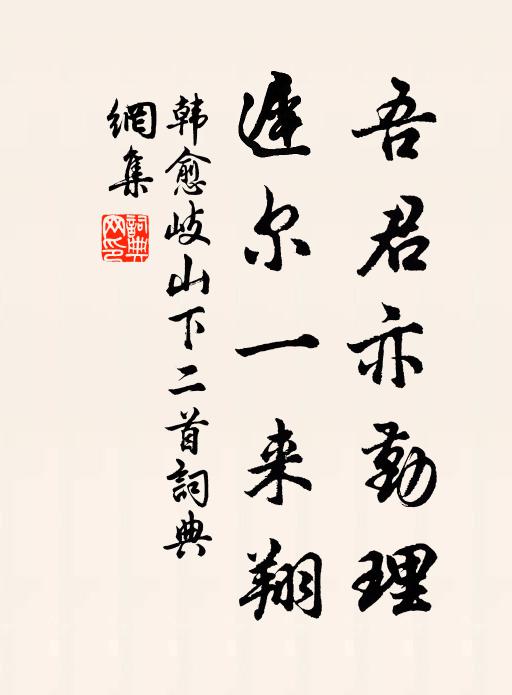 吾君亦勤理
遲尔一来翔
韩愈岐山下二首詞典
網集
詞典
网印